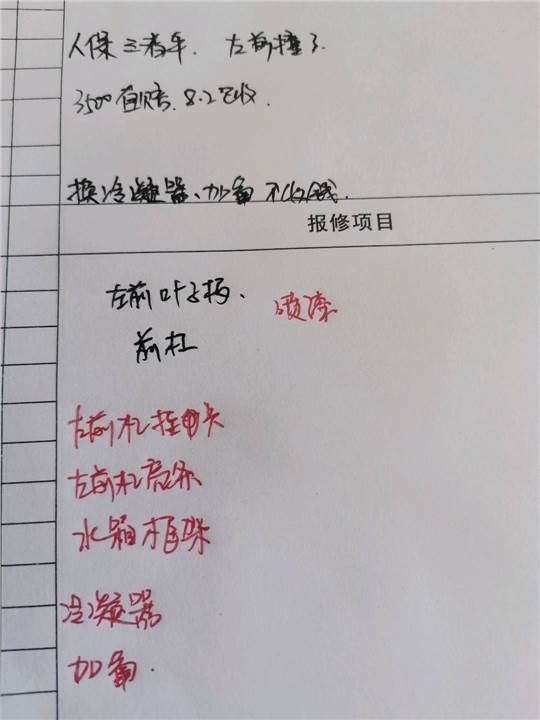 人保三者车. 左前撞了.
3500直赔. 8.2验收.
换冷凝器、加氟 不收钱.
报修项目
左前叶子板. 喷漆
前杠
左前杠
左前杠亮条
水箱框架
冷凝器
加氟.